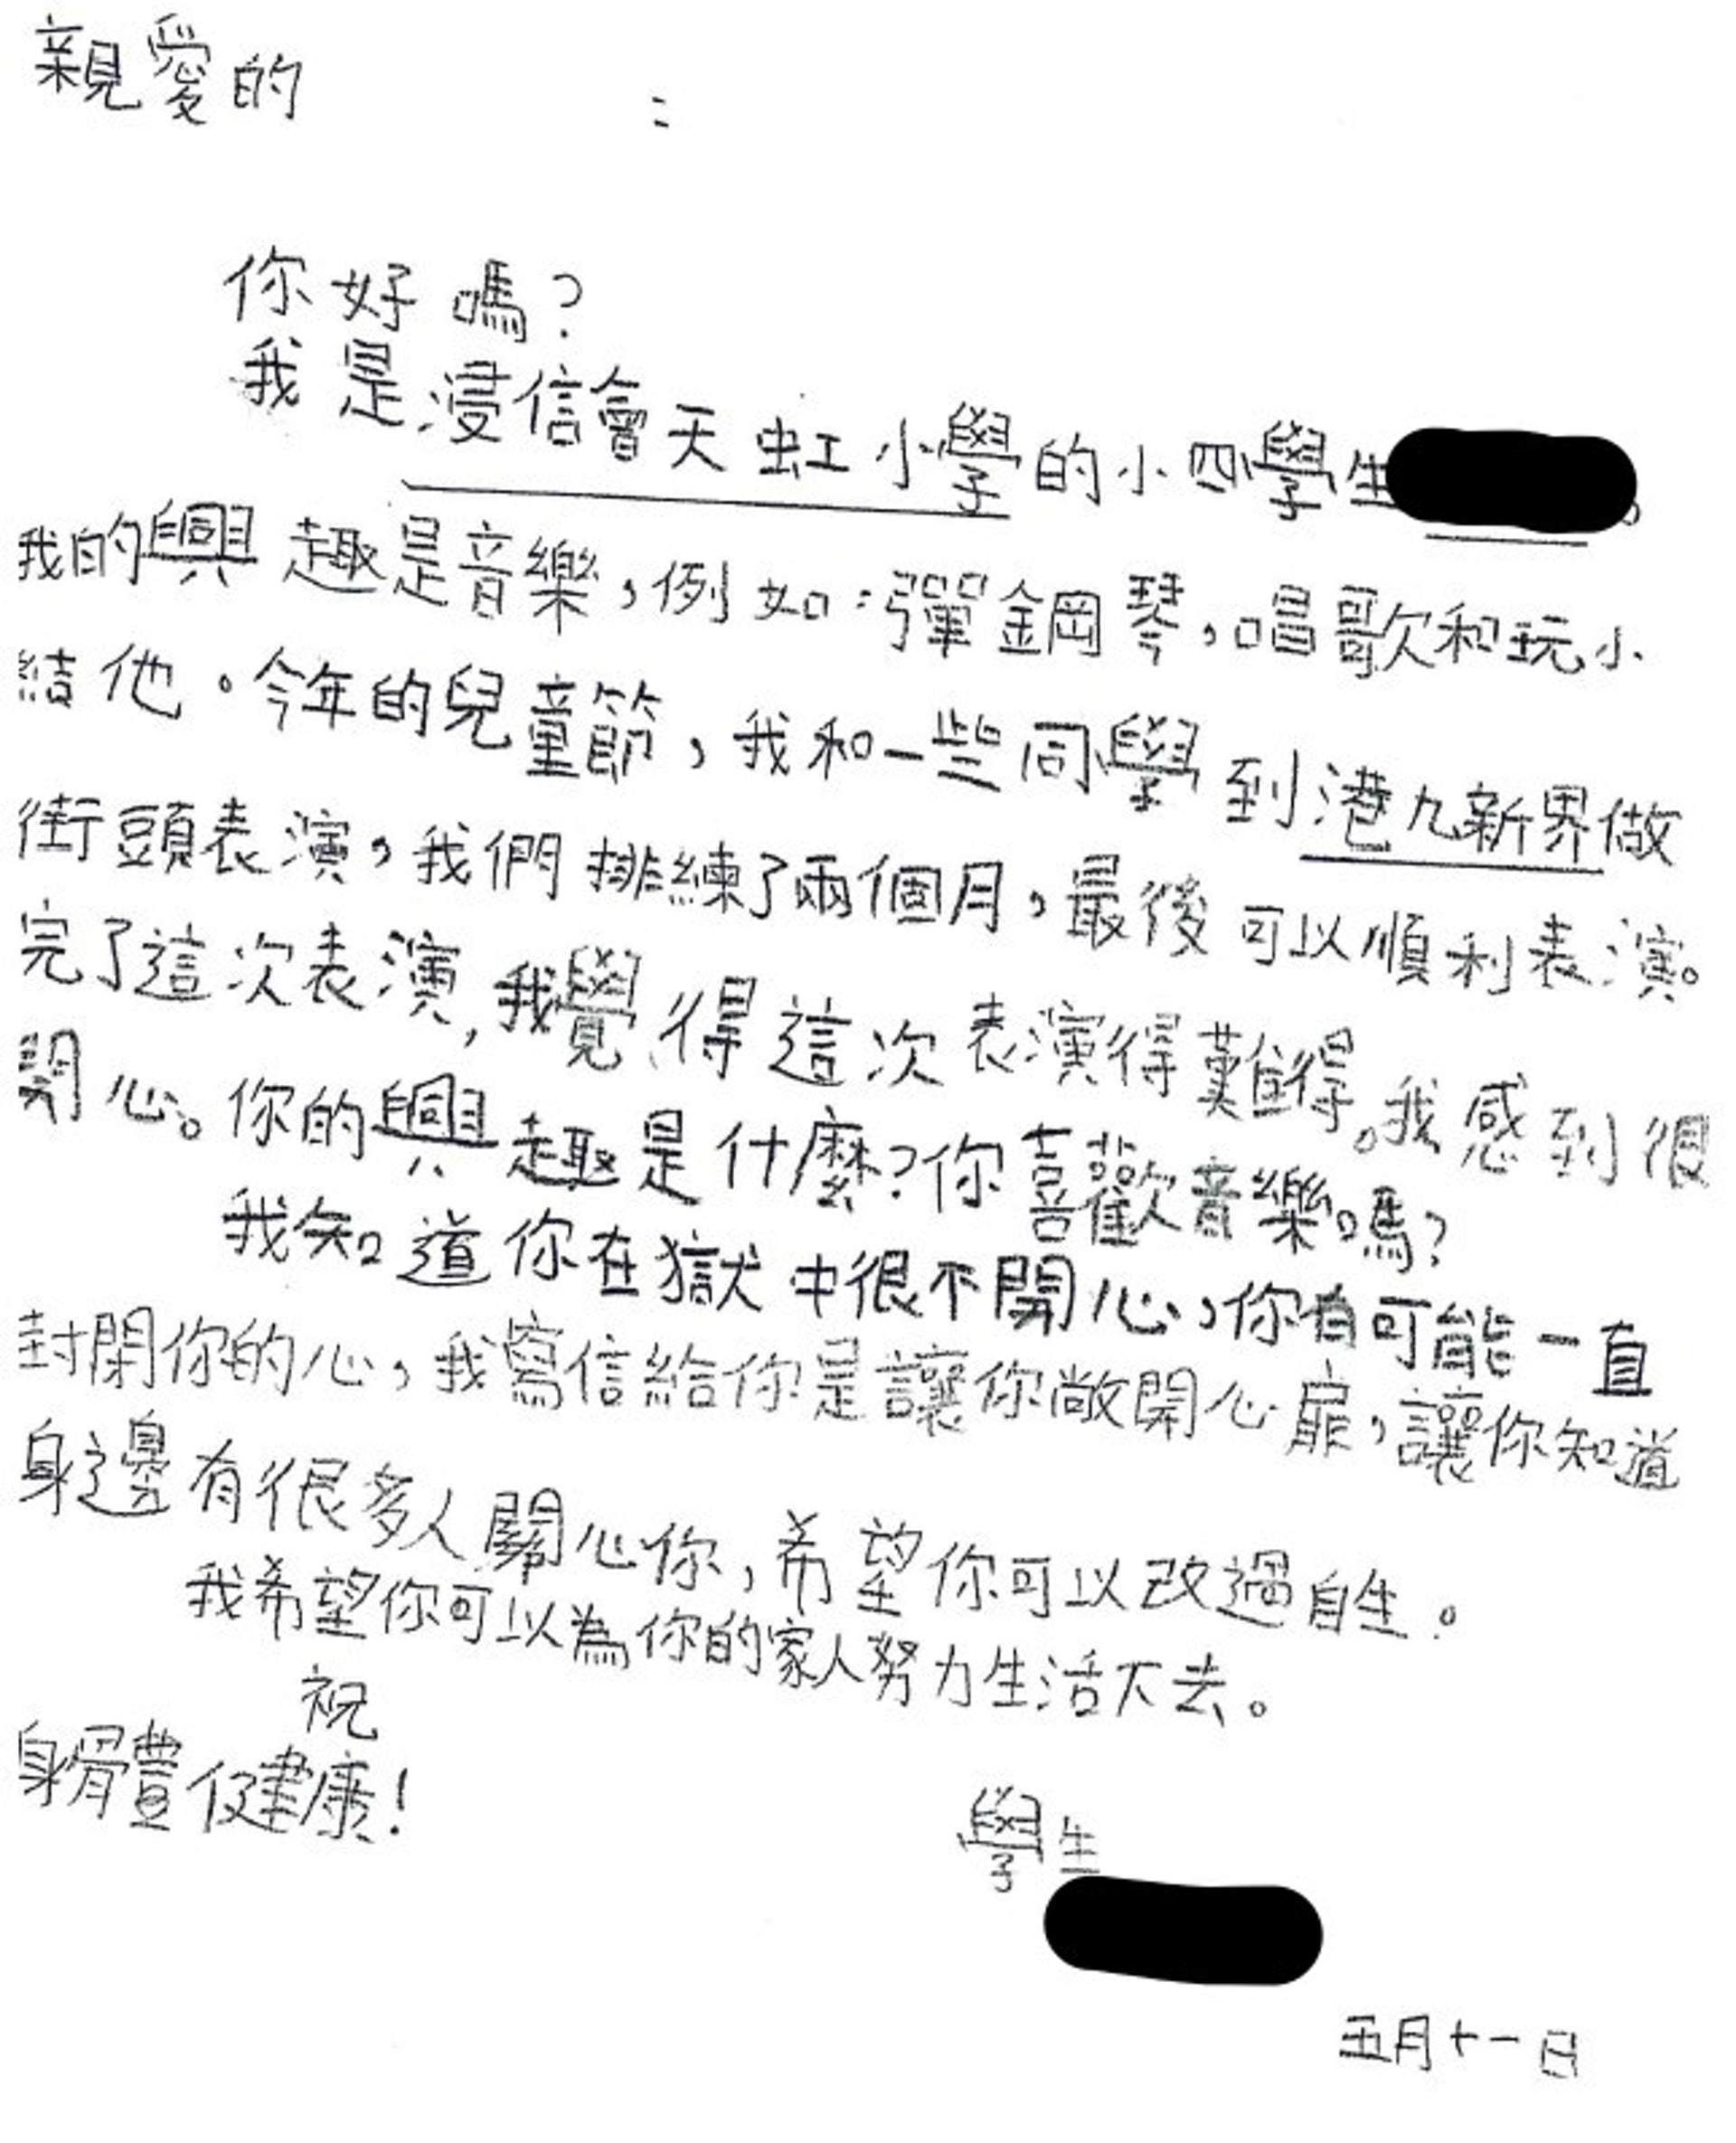 親愛的　　　　：
你好嗎？
我是浸信會天虹小學的小四學生。
我的興趣是音樂，例如：彈鋼琴，唱歌和玩小
結他。今年的兒童節，我和一些同學到港九新界做
街頭表演，我們排練了兩個月，最後可以順利表演。
完了這次表演，我覺得這次表演得難得。我感到很
開心。你的興趣是什麼？你喜歡音樂嗎？
我知道你在獄中很不開心，你有可能一直
封閉你的心，我寫信給你是讓你敞開心扉，讓你知道
身邊有很多人關心你，希望你可以改過自生。
我希望你可以為你的家人努力生活下去。
祝
身體健康！
學生
五月十一日